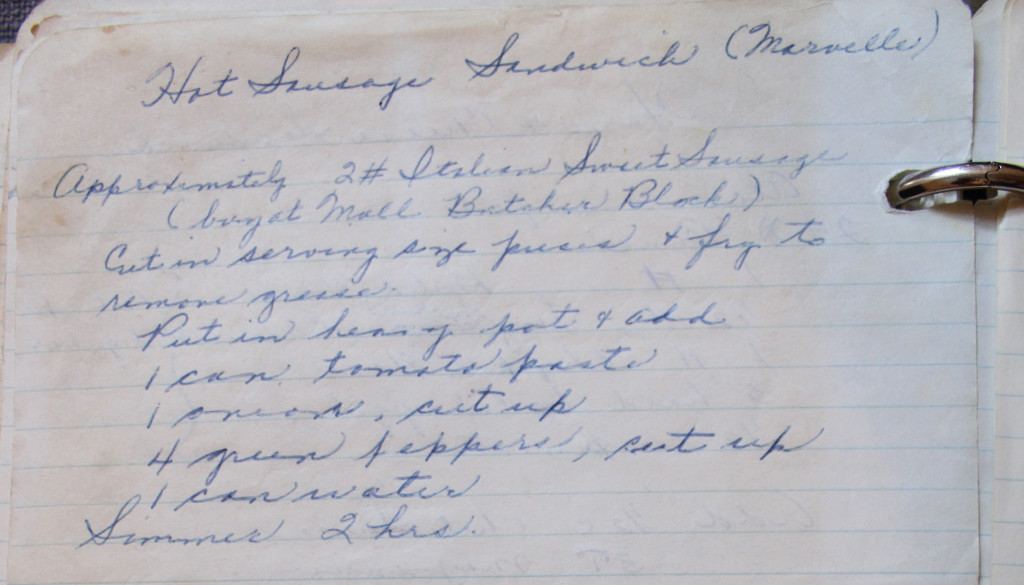 Hot Sausage Sandwich (Marvelle)
Approximately 2# Italian Sweet Sausage
(buy at Mall Butcher Block)
Cut in serving size pieces & fry to
remove grease.
Put in heavy pot & add
1 can tomato paste
1 onion, cut up
4 green peppers, cut up
1 can water
Simmer 2 hrs.